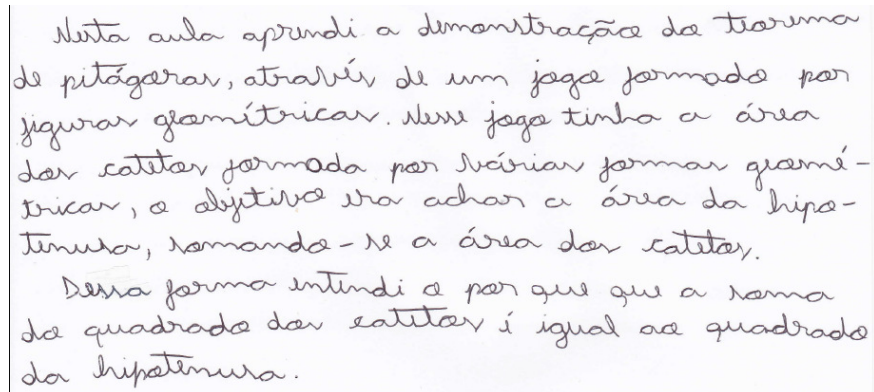 Nesta aula aprendi a demonstração do teorema
de pitágoras, através de um jogo formado por
figuras geométricas. Nesse jogo tinha a área
dos catetos formada por várias formas geomé-
tricas, o objetivo era achar a área da hipo-
tenusa, somando-se a área dos catetos.
Dessa forma entendi o por que que a soma
do quadrado dos catetos é igual ao quadrado
da hipotenusa.